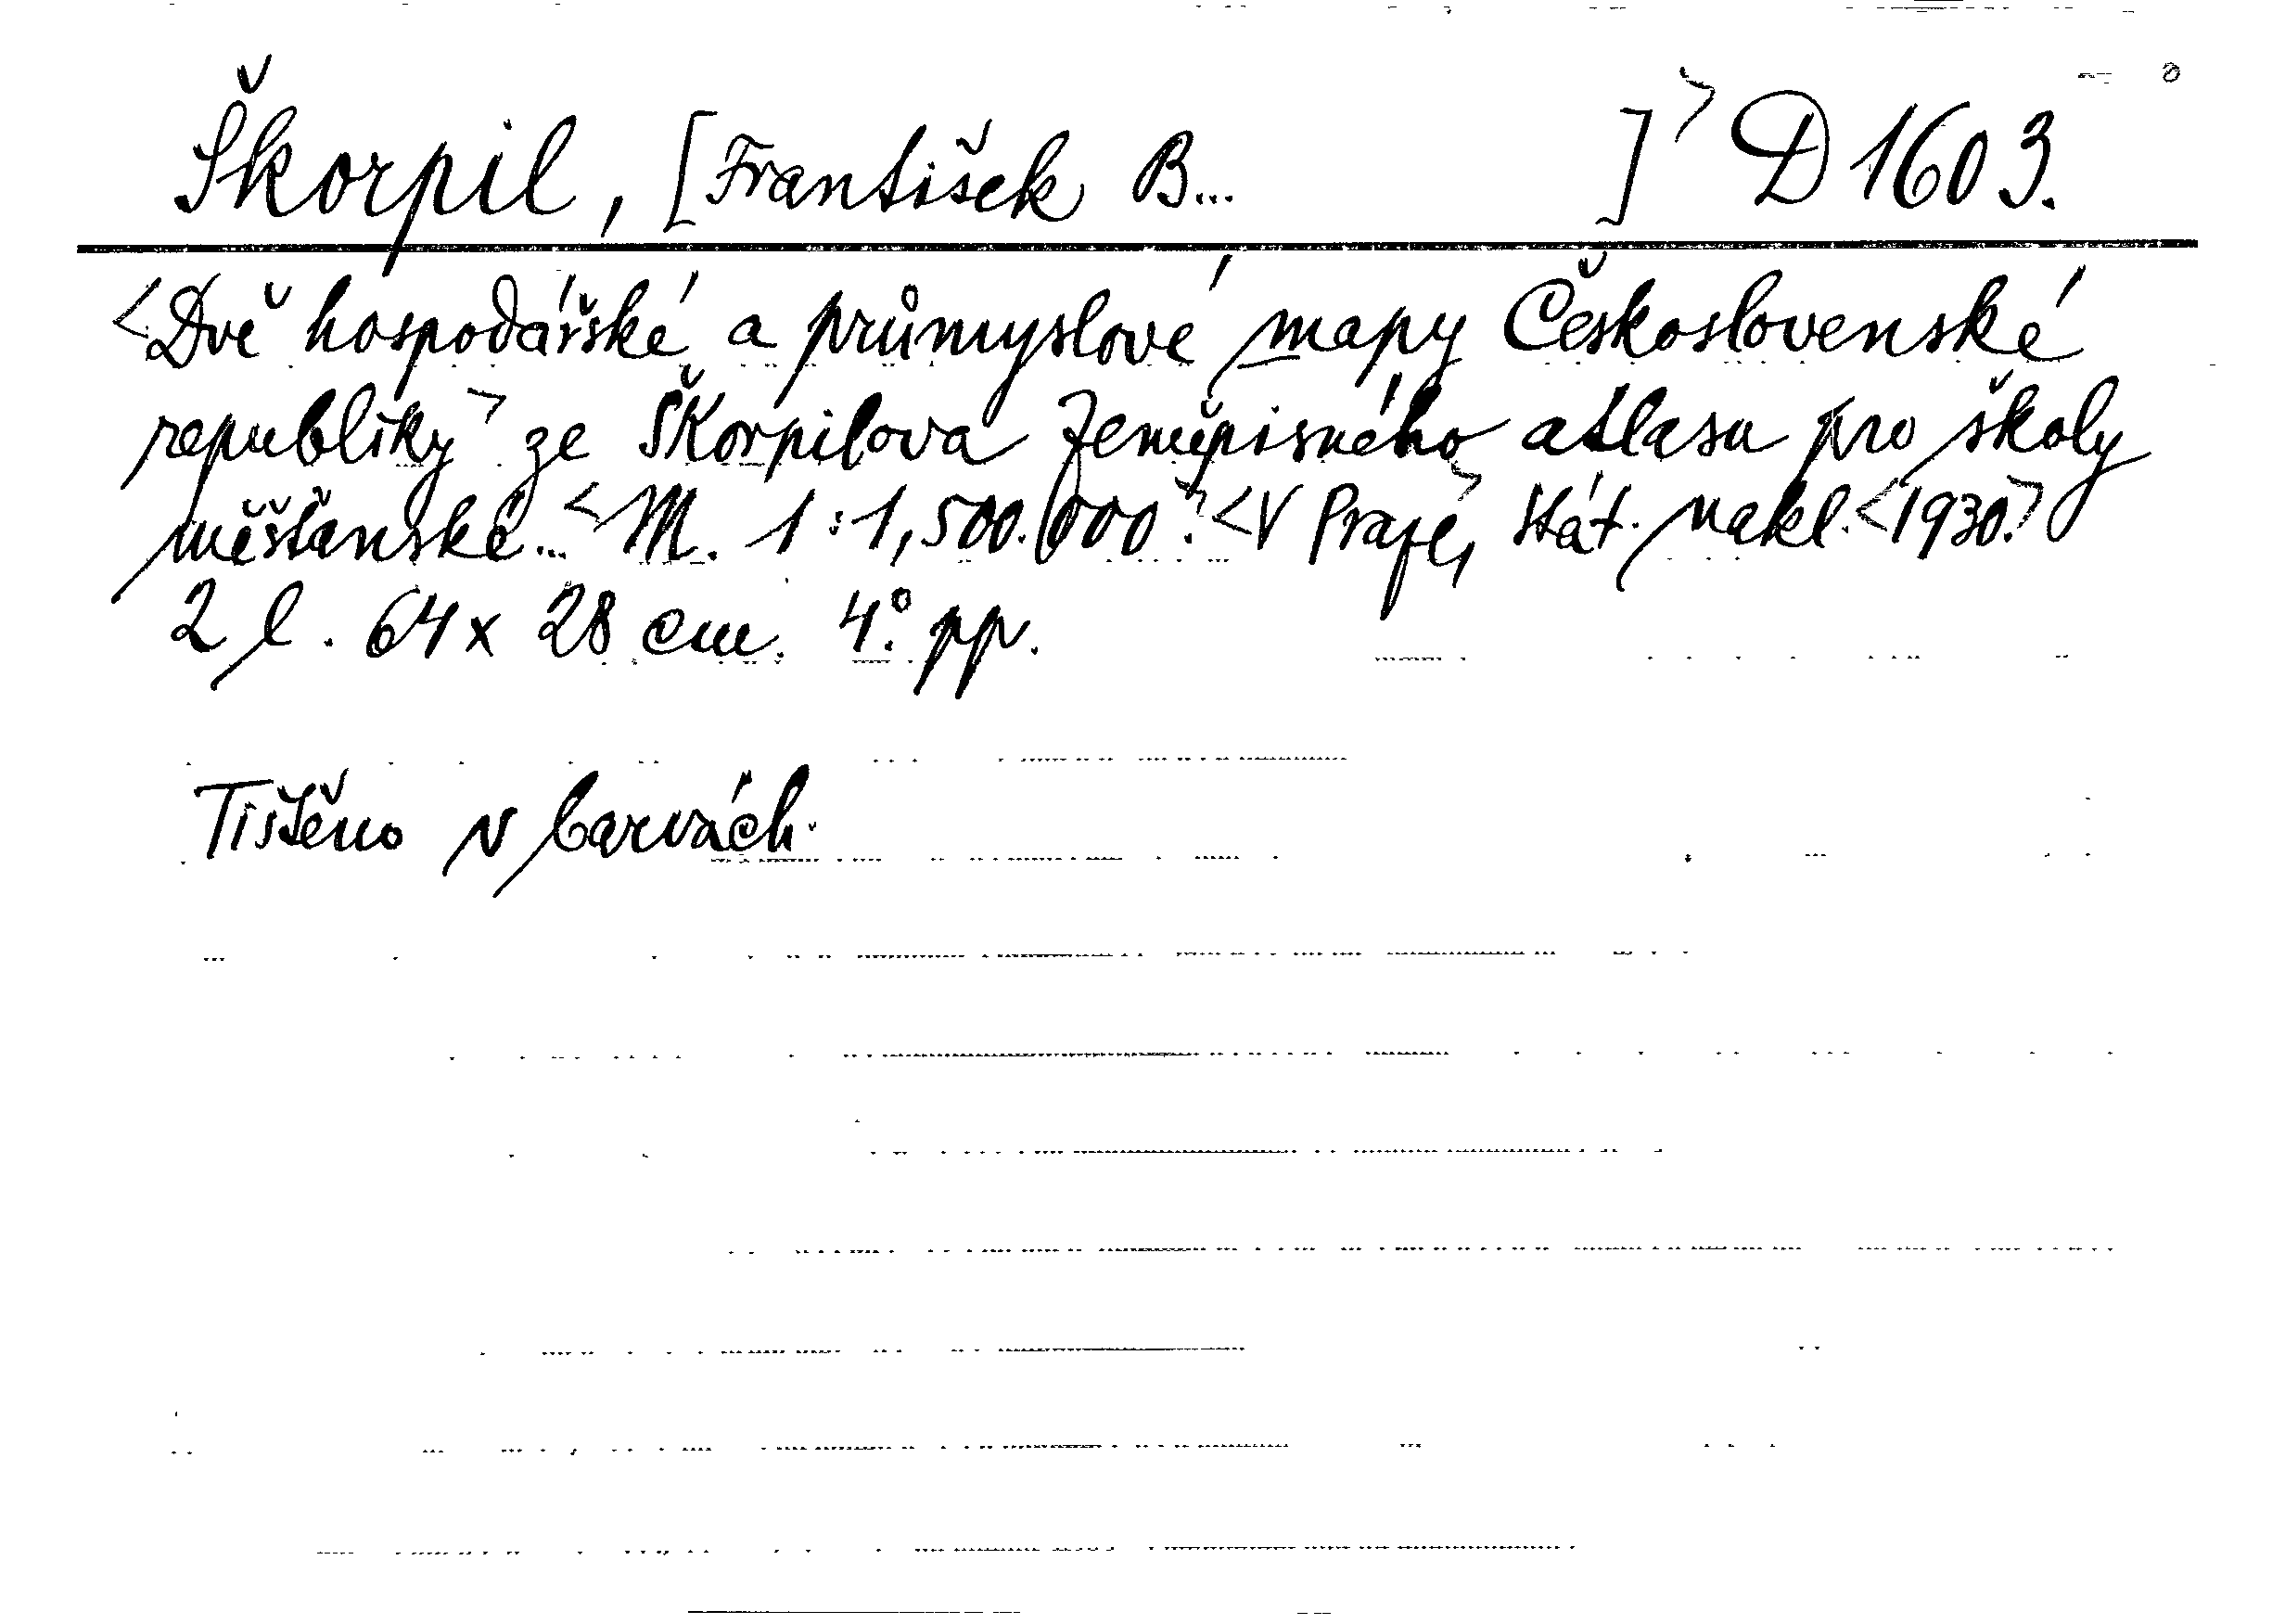 Škorpil, [František B... ]> D 1603.
<Dvě hospodářské a průmyslové mapy Československé
republiky> ze Škorpilova Zeměpisného atlasu pro školy
měšťanské... <M. 1:1,500.000.> <V Praze,> Stát. nakl. <1930.>
2 l. 64 x 28 cm. 4°. pp.
Tištěno v barvách.